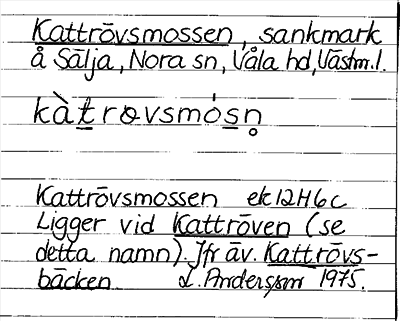 Kattrövsmossen, sankmark
å Sälja, Nora sn, Våla hd, Västm.l.
kàt̲rɵvsmós̲n̥
Kattrövsmossen ek 12H6c
Ligger vid Kattröven (se
detta namn). Jfr äv. Kattrövs-
bäcken L. Andersson 1975.